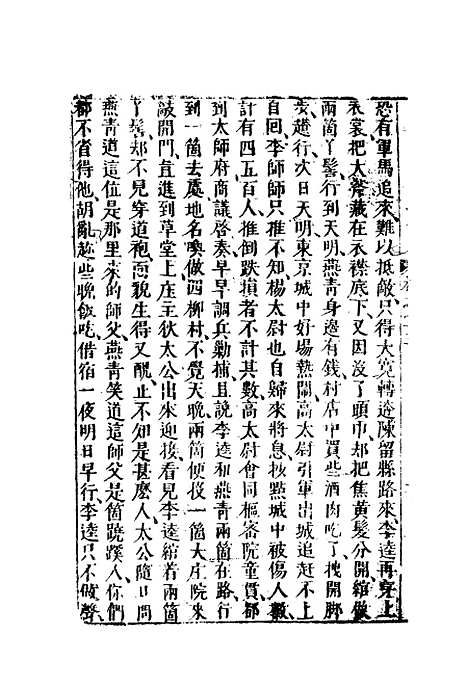 恐有軍馬追來難以抵敵只得大寬轉過陳留縣路來李逵再穿上
衣裳把大斧藏在衣襟底下又因沒了頭巾却把焦黃髮分開綰做
兩箇丫髻行到天明燕青身邊有錢村店中買些酒肉吃了拽開脚
步趲行次日天明東京城中好場熱鬧高太尉引軍出城追赶不上
自回李師師只推不知楊太尉也自歸來將息抜點城中被傷人數
計有四五百人推倒跌損者不計其數高太尉會同樞密院童貫都
到太師府商議啓奏早早調兵勦捕且說李逵和燕青兩箇在路行
到一箇去處地名喚做四柳村不覺天晚兩箇便投一箇大庄院來
敲開門直進到草堂上庄主狄太公出來迎接看見李逵綰着兩箇
丫髻却不見穿道袍面貌生得又醜正不知是甚麽人太公隨口問
燕青道這位是那里來的師父燕青笑道這師父是箇蹺蹊人你們
都不省得他胡亂趂些晚飯吃借宿一夜明日早行李逵只不做聲